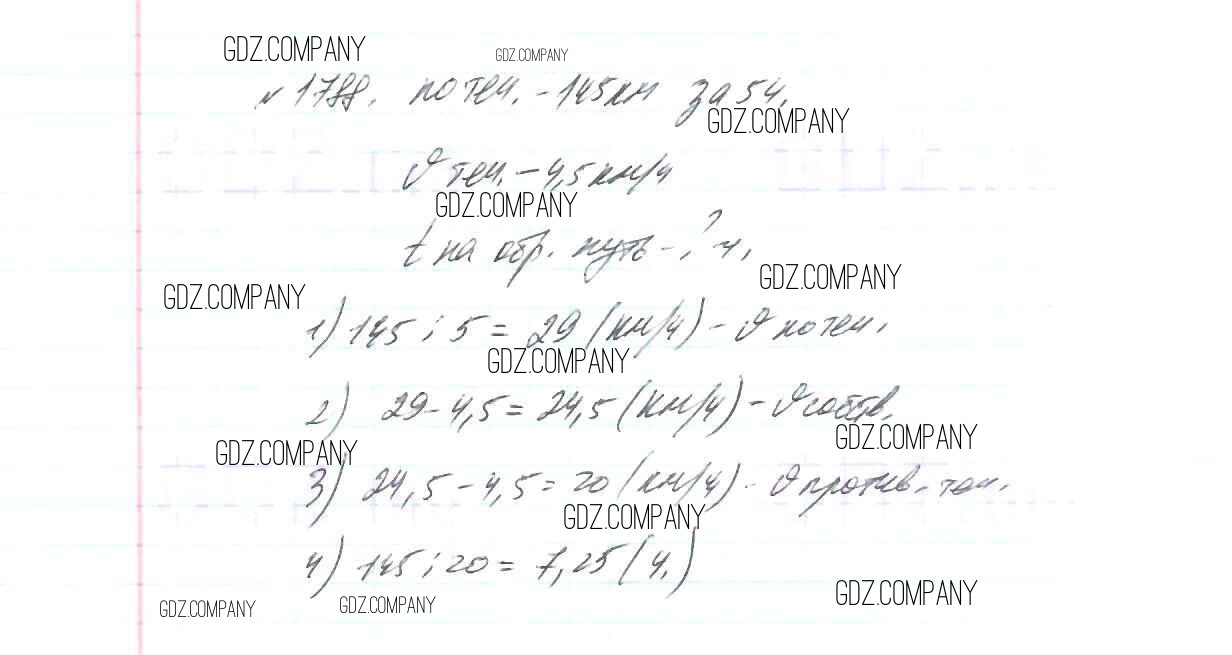 GDZ.COMPANY
GDZ.COMPANY
№ 1788. по теч. - 145 км за 5 ч.
GDZ.COMPANY
υ теч. - 4,5 км/ч
GDZ.COMPANY
t на обр. путь - ? ч.
GDZ.COMPANY
GDZ.COMPANY
1) 145 : 5 = 29 (км/ч) - υ по теч.
GDZ.COMPANY
2) 29 - 4,5 = 24,5 (км/ч) - υ собств.
GDZ.COMPANY
GDZ.COMPANY
3) 24,5 - 4,5 = 20 (км/ч) - υ против. теч.
GDZ.COMPANY
4) 145 : 20 = 7,25 (ч.)
GDZ.COMPANY
GDZ.COMPANY
GDZ.COMPANY